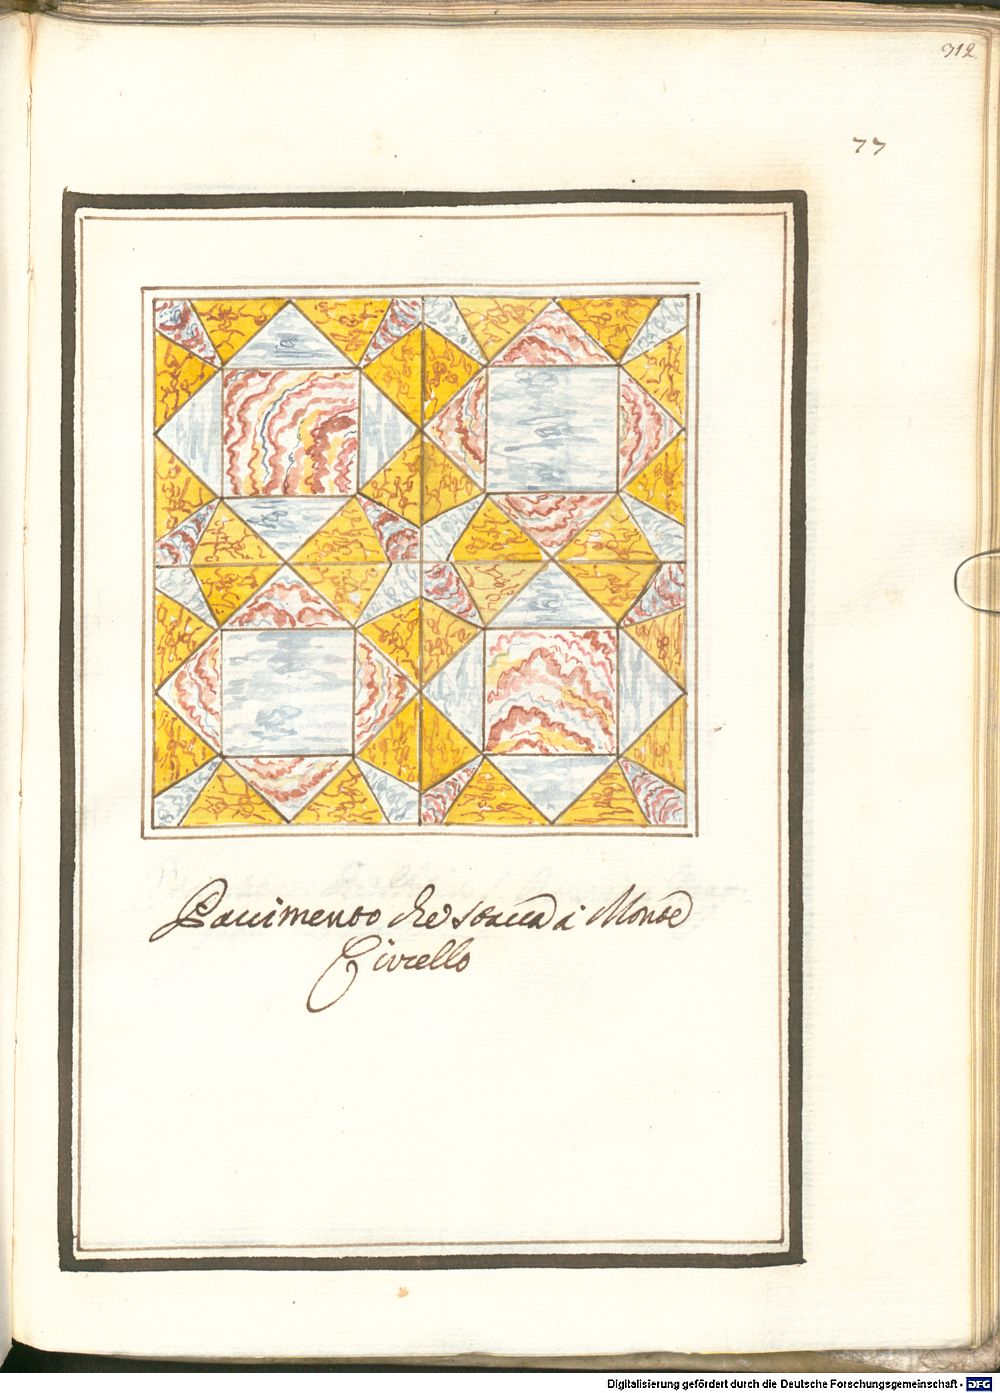 312
77
Pauimento che staua à Monte
Circello
Digitalisierung gefördert durch die Deutsche Forschungsgemeinschaft - DFG